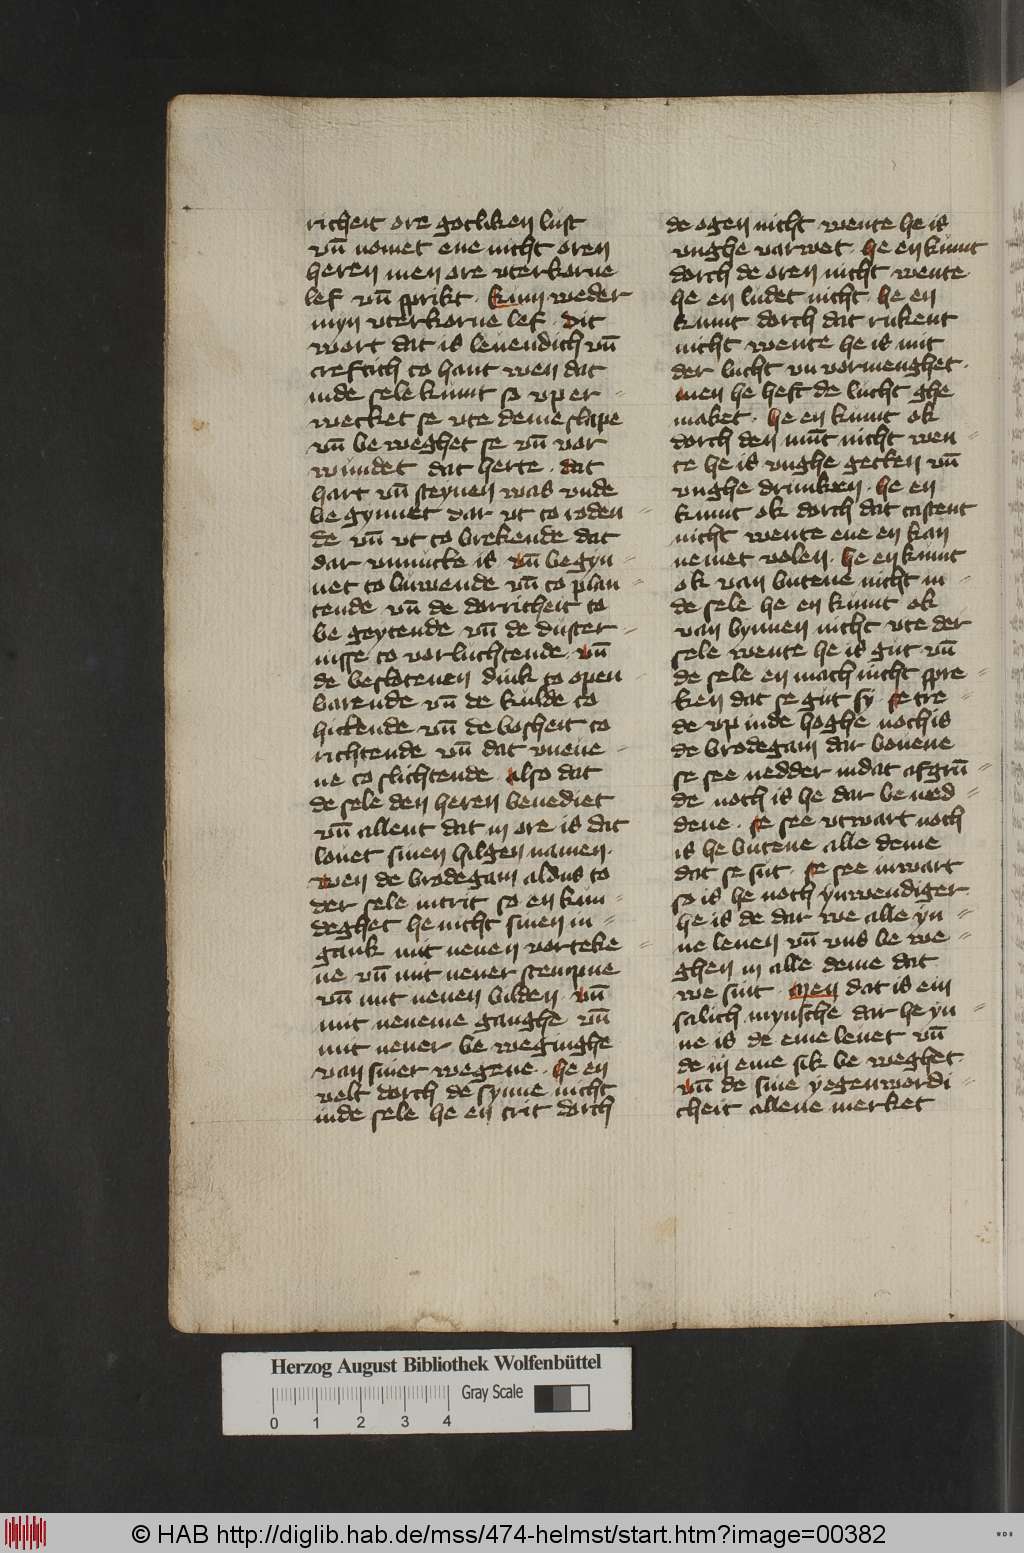 richeit ore gotliken lust
vn̄ nomet ene nicht oren
heren men ore vterkorne
lef vn̄ sprikt · kum weder
myn vterkorne lef · dit
wort dat is leuendich vn̄
creftich to hant wen dat
inde sele kumt so vp er-
wecket se vte deme slape
vn̄ be weghet se vn̄ vor
wundet dat herte · dat
hart vn̄ steynen was vnde
be gynnet dar vt to roden
de vn̄ vt to brekende dat
dar vnnutte is vn̄ be gyn-
net to buwende vn̄ to plan
tende vn̄ de dorricheit to
be geytende vn̄ de duster-
nisse to vorluchtende · vn̄
de beslotenen dink to open
barende vn̄ de kulde to
hittende vn̄ de bosheit to
richtende vn̄ dat vneue-
ne to slichtende · also dat
de sele den heren benediet
vn̄ allent dat in ore is dat
louet sinen hilgen namen ·
wen de brodegam aldus to
der sele intrit so en kun-
deghet he nicht sinen in-
gank mit nenen vorteke
ne vn̄ mit nener stempne
vn̄ mit nenen bilden · vn̄
mit neneme ganghe vn̄
mit nener be weginghe
van siner wegene · he en
velt dorch de synne nicht
inde sele he en trit dorch
de ogen nicht wente he is
vnghe varwet · he en kumt
dorch de oren nicht wente
he en ludet nicht · he en
kumt dorch dat rukent
nicht wente he is mit
der lucht vn vormenghet ·
men he heft de lucht ghe
maket · he en kumt ok
dorch den mūt nicht wen-
te he is vnghe getten vn̄
vnghe drunken · he en
kumt ok dorch dat tastent
nicht wente ene en kan
nemet volen · he en kumt
ok van butene nicht in-
de sele he en kumt ok
van bynnen nicht vte der
sele wente he is gut · vn̄
de sele en mach nicht spre-
ken dat se gut sy · se tre-
de vp inde hoghe noch is
de brodegam dar bouene
se see nedder in dat afgrū-
de noch is he dar be ned-
dene · se see vtwart noch
is he butene alle deme
dat se sut · se see inwart
so is he noch ynwendiger
he is de dar we alle yn-
ne leuen vn̄ vns be we-
ghen in alle deme dat
we sint · Men dat is ein
salich mynsche dar he yn-
ne is de eme leuet vn̄
de in eme sik be weghet ·
vn̄ de sine yegenwordi-
cheit allene merket
Herzog August Bibliothek Wolfenbüttel
Gray Scale
0 1 2 3 4
© HAB http://diglib.hab.de/mss/474-helmst/start.htm?image=00382